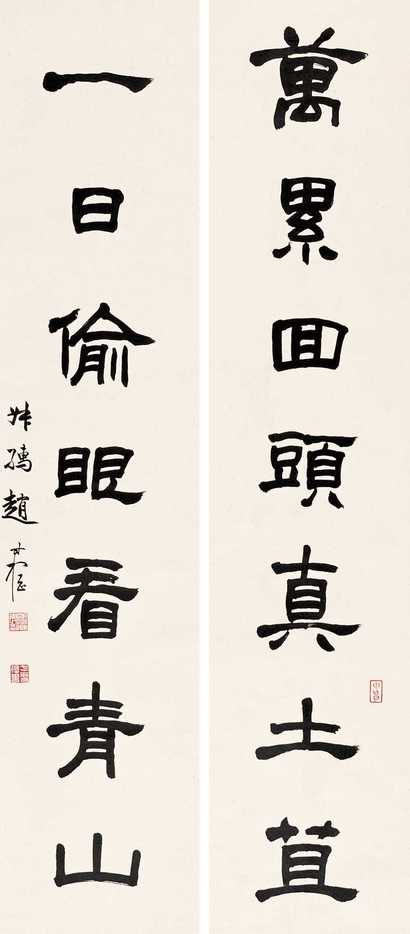 萬累回頭真土苴
一日偷眼看青山
趙